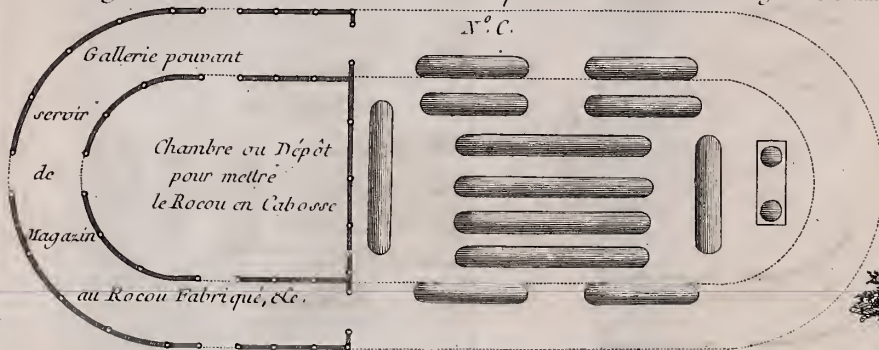 N.º C.
Gallerie pouvant
servir
de
Magazin
au Rocou Fabriqué, &c.
Chambre ou Dépôt
pour mettre
le Rocou en Cabosse